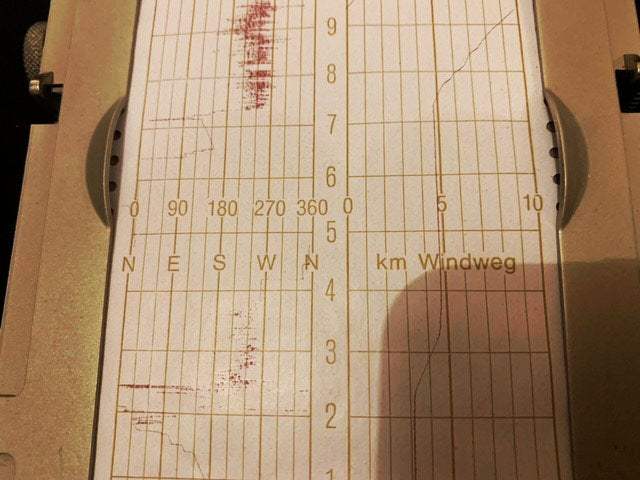 9
8
7
6
0 90 180 270 360 0 5 10
5
N E S W N km Windweg
4
3
2
1